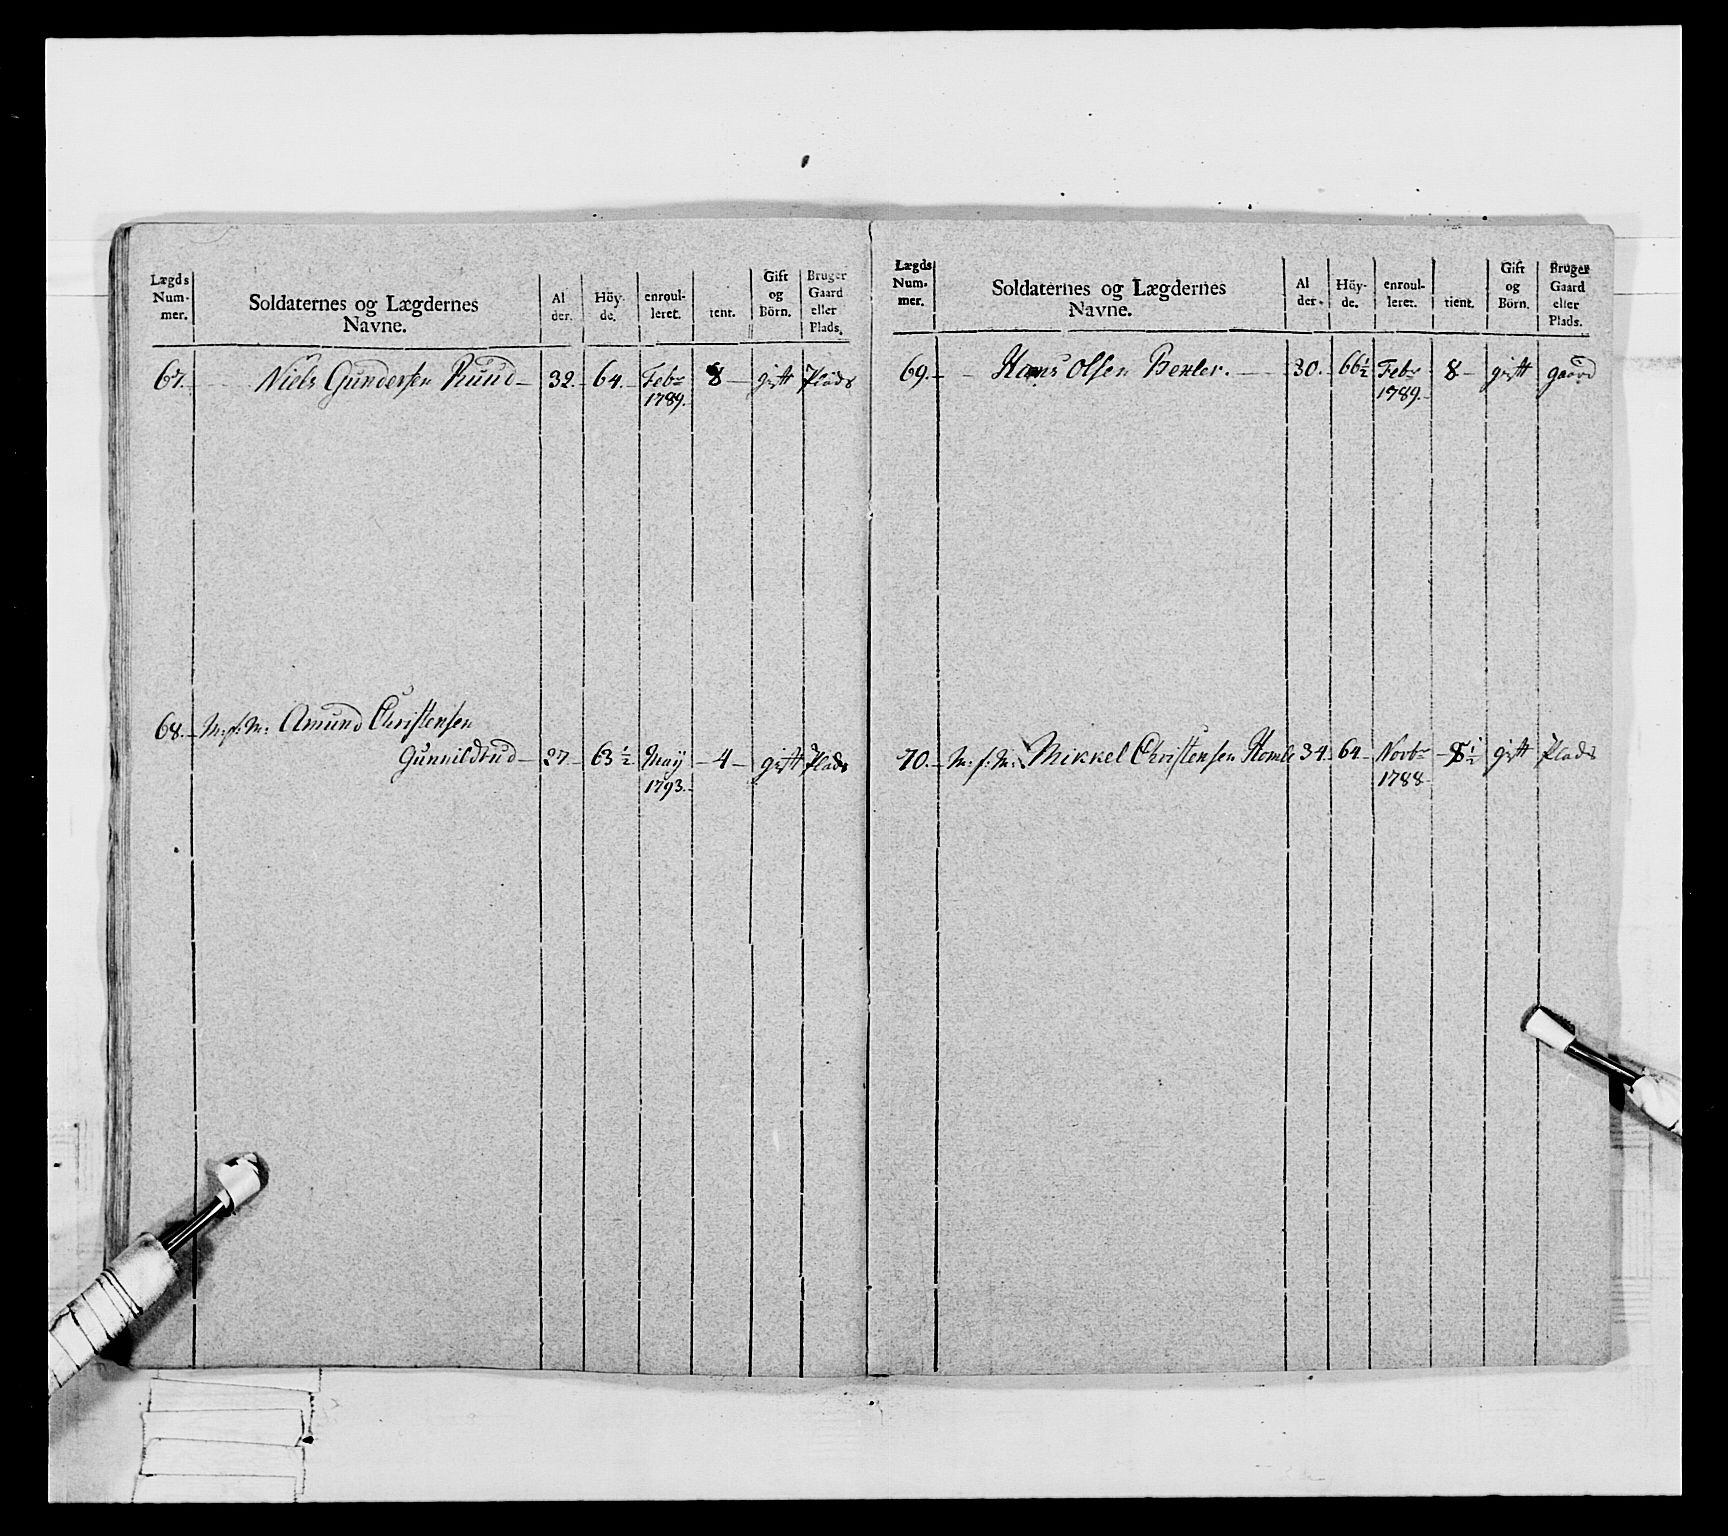 Lægds Num- mer.
Soldaternes og Lægdernes Navne.
Al der.
Höy- de.
enroul- leret.
tient.
Gift og Börn.
Bruger Gaard eller Plads.
67. Niels Gundersen Ruud 32. 64. Febr 8 gift Plads
1789.
68. M: f: M: Amund Christensen
Gunnildrud 27 63 1/2 May 4 gift Plads
1793.
Lægds Num- mer.
Soldaternes og Lægdernes Navne.
Al der.
Höy- de.
enroul- leret.
tient.
Gift og Börn.
Bruger Gaard eller Plads.
69. Hans Olsen Bexler. 30. 66 1/2 Febr 8 gift gaard
1789.
70. M: f: M: Mikkel Christensen Homle 34. 64 Novbr 8 1/2 gift Plads
1788